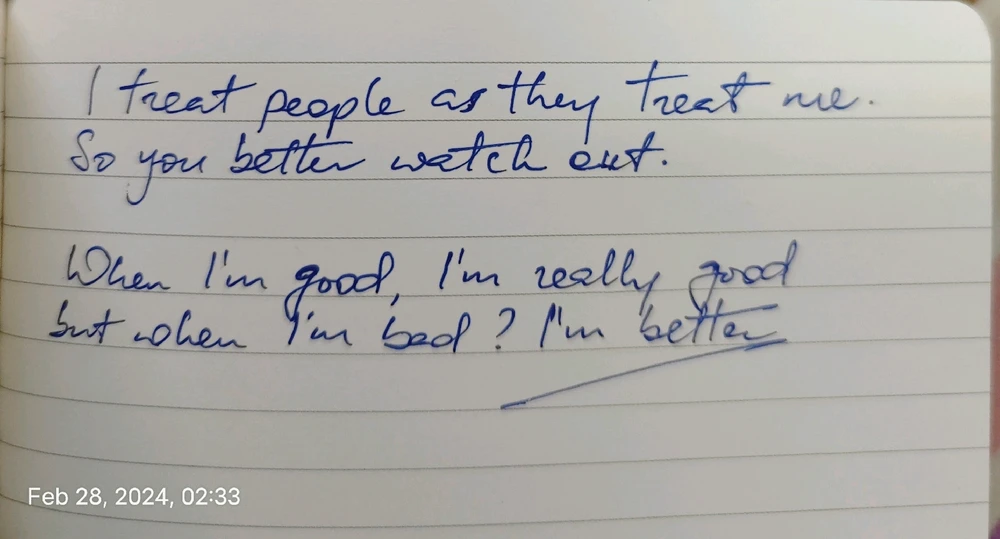 I treat people as they treat me.
So you better watch out.
When I'm good, I'm really good
but when I'm bad? I'm better
Feb 28, 2024, 02:33